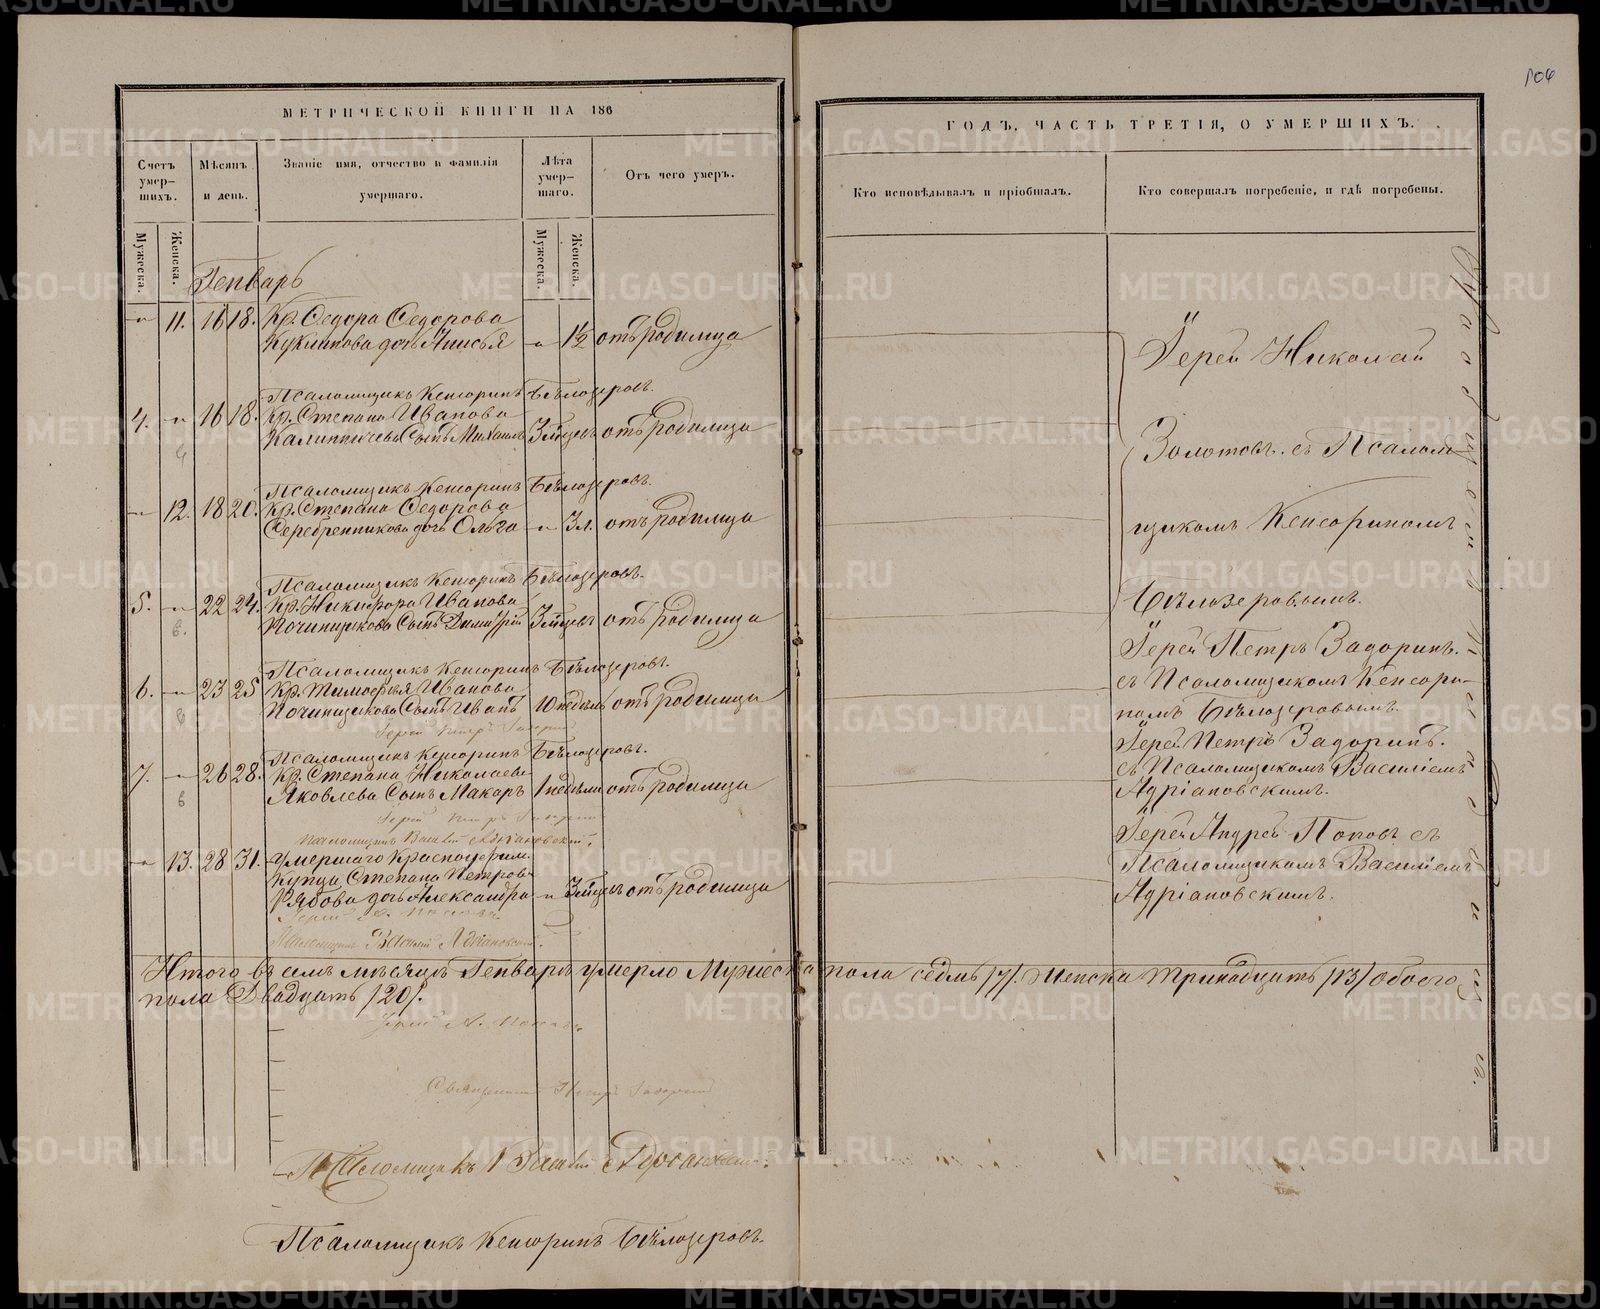 106
МЕТРИЧЕСКОЙ КНИГИ НА 186
ГОДЪ, ЧАСТЬ ТРЕТІЯ, О УМЕРШИХЪ.
Счетъ умер-
шихъ.
Мѣсяцъ
и день.
Званіе имя, отчество и фамилія
умершаго.
Лѣта
умер-
шаго.
Отъ чего умеръ.
Кто исповѣдывалъ и пріобщалъ.
Кто совершалъ погребеніе, и гдѣ погребены.
Мужеска.
Женска.
Мужеска.
Женска.
Генварь
11. 16 18. Кр. Ѳедора Ѳедорова
дочь Анисья 1½ отъ родимца
Псаломщикъ Кенсоринъ Бѣлозеровъ.
4. 16 18. Кр. Степана Иванова
Сынъ Михаилъ 3 мѣсцевъ отъ родимца
Псаломщикъ Кенсоринъ Бѣлозеровъ.
12. 18 20. Кр. Степана Ѳедорова
Серебренникова дочь Ольга 3 л. отъ родимца
Псаломщикъ Кенсоринъ Бѣлозеровъ.
5. 22 24. Кр. Никифора Иванова
Починщикова Сынъ Димитрій 3 мѣсцевъ отъ родимца
Псаломщикъ Кенсоринъ Бѣлозеровъ.
6. 23 25 Кр. Тимофея Иванова
Починщикова Сынъ Иванъ 10 недѣль отъ родимца
Іерей Петръ Задоринъ
Псаломщикъ Кенсоринъ Бѣлозеровъ.
7. 26 28. Кр. Степана Николаева
Яковлева Сынъ Макаръ 1 недѣли отъ родимца
Іерей Петръ Задоринъ
Псаломщикъ Василій Адріановскій.
13. 28 31. Умершаго Красноуфим.
Купца Степана Петрова
Рябова дочь Александра 3 мѣсцевъ отъ родимца
Іерей А. Поповъ.
Псаломщикъ Василій Адріановскій.
Іерей Николай
Золотовъ. съ Псалом
щикомъ Кенсориномъ
Бѣлозеровымъ.
Іерей Петръ Задоринъ.
съ Псаломщикомъ Кенсори-
номъ Бѣлозеровымъ.
Іерей Петръ Задоринъ.
съ Псаломщикомъ Василіемъ
Адріановскимъ.
Іерей Андрей Поповъ съ
Псаломщикомъ Василіемъ
Адріановскимъ.
Итого въ семъ мѣсяцѣ Генварѣ умерло Мужеска пола седмь /7/. Женска тринадцать /13/ обоего
пола Двадцать /20/.
Іерей А. Поповъ
Священникъ Петръ Задоринъ
Псаломщикъ Василій Адріановскій.
Псаломщикъ Кенсоринъ Бѣлозеровъ.